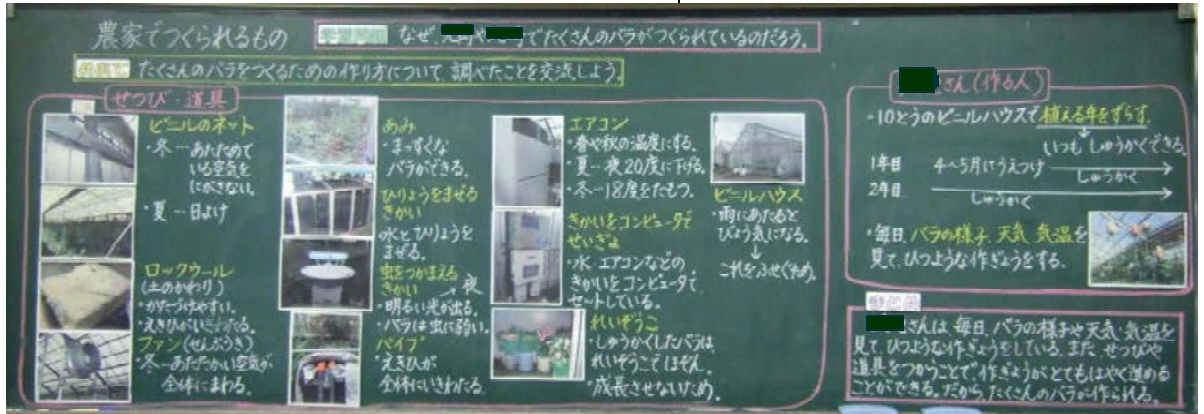 農家でつくられるもの
なぜ、
でたくさんのバラがつくられているのだろう。
たくさんのバラをつくるための作り方について、調べたことを交流しよう。
せつび・道具
ビニールのネット
・冬…あたためて
いる空気を
にがさない。
・夏…日よけ
ロックウール
(土のかわり)
・かたづけやすい。
・えきひがいきわたる。
ファン(せんぷうき)
・冬…あたたかい空気が
全体にまわる。
あみ
・まっすぐな
バラができる。
ひりょうをまぜる
きかい
・水とひりょうを
まぜる。
虫をつかまえる
きかい
夜
・明るい光が出る。
・バラは虫に弱い。
パイプ
・えきひが
全体にいきわたる。
エアコン
・春や秋の温度にする。
・夏…夜20度に下げる。
・冬…18度をたもつ。
きかいをコンピュータで
せいぎょ
・水、エアコンなどの
きかいをコンピュータで
セットしている。
れいぞうこ
・しゅうかくしたバラは
れいぞうこでほぞん。
・成長させないため。
ビニールハウス
・雨にあたると
びょう気になる。
↓
これをふせぐため。
さん(作る人)
・10とうのビニールハウスで植える年をずらす。
いつもしゅうかくできる。
1年目 4〜5月にうえつけ しゅうかく
2年目 しゅうかく
・毎日、バラの様子、天気、気温を
見て、ひつような作ぎょうをする。
さんは、毎日、バラの様子や天気・気温を
見て、ひつような作ぎょうをしている。また、せつびや
道具をつかうことで作ぎょうがとてもはやく進める
ことができる。だから、たくさんのバラが作られる。